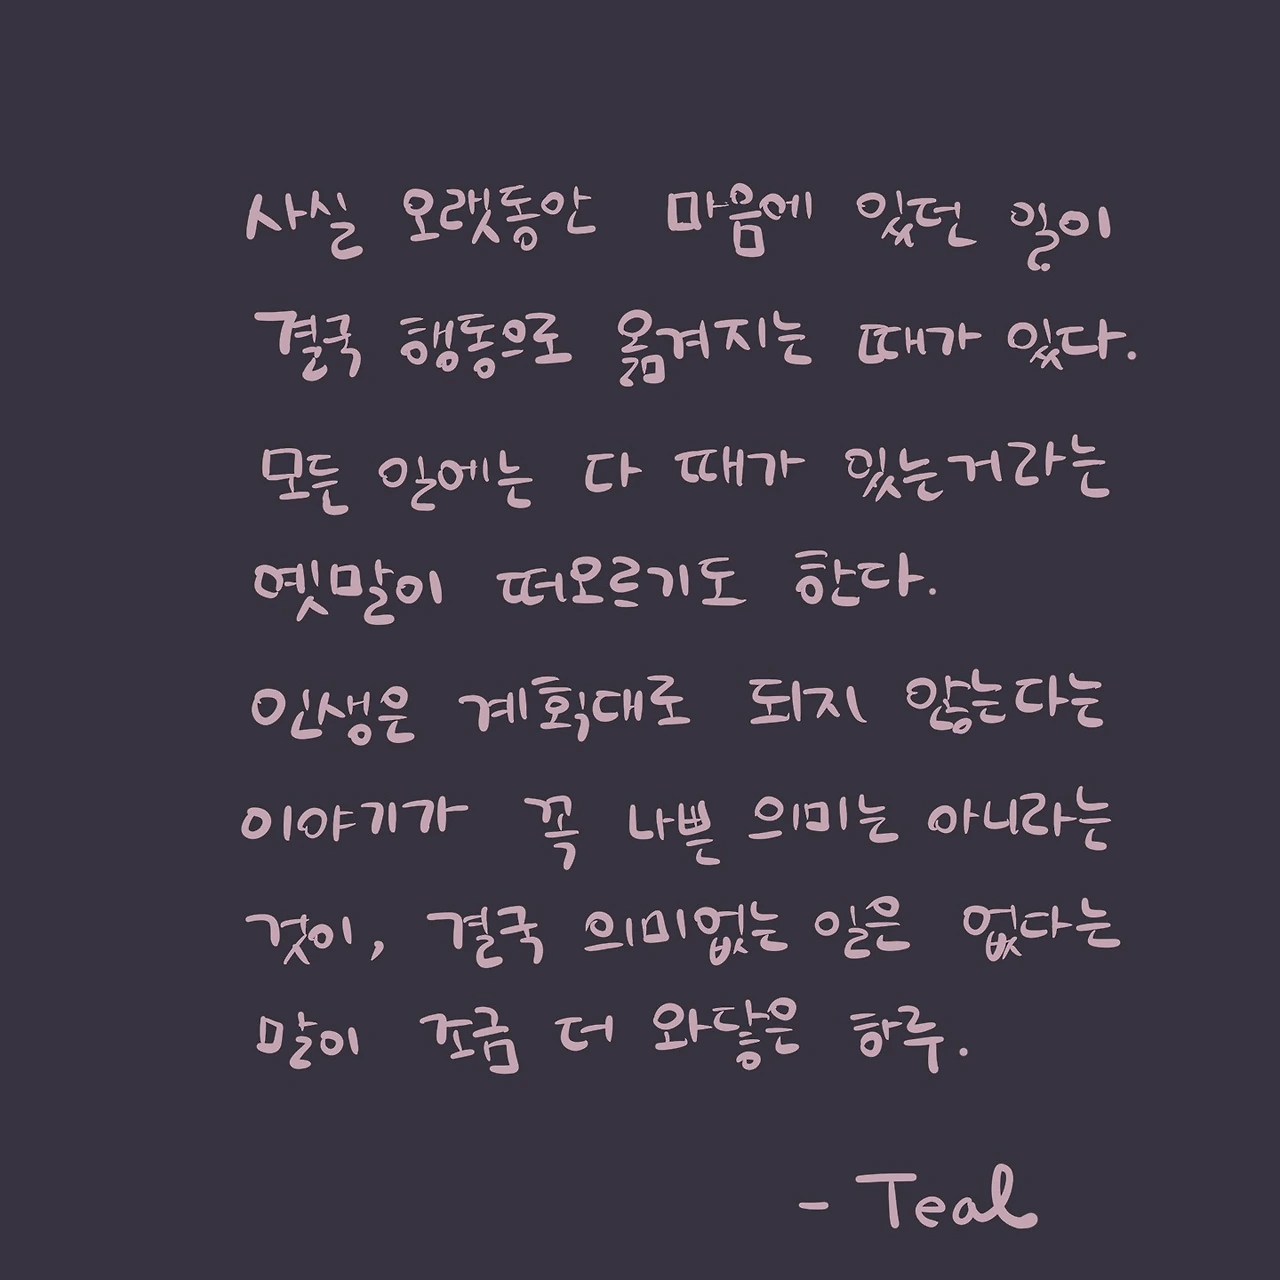 사실 오랫동안 마음에 있던 일이
결국 행동으로 옮겨지는 때가 있다.
모든 일에는 다 때가 있는거라는
옛말이 떠오르기도 한다.
인생은 계획대로 되지 않는다는
이야기가 꼭 나쁜 의미는 아니라는
것이, 결국 의미없는 일은 없다는
말이 조금 더 와닿은 하루.
- Teal